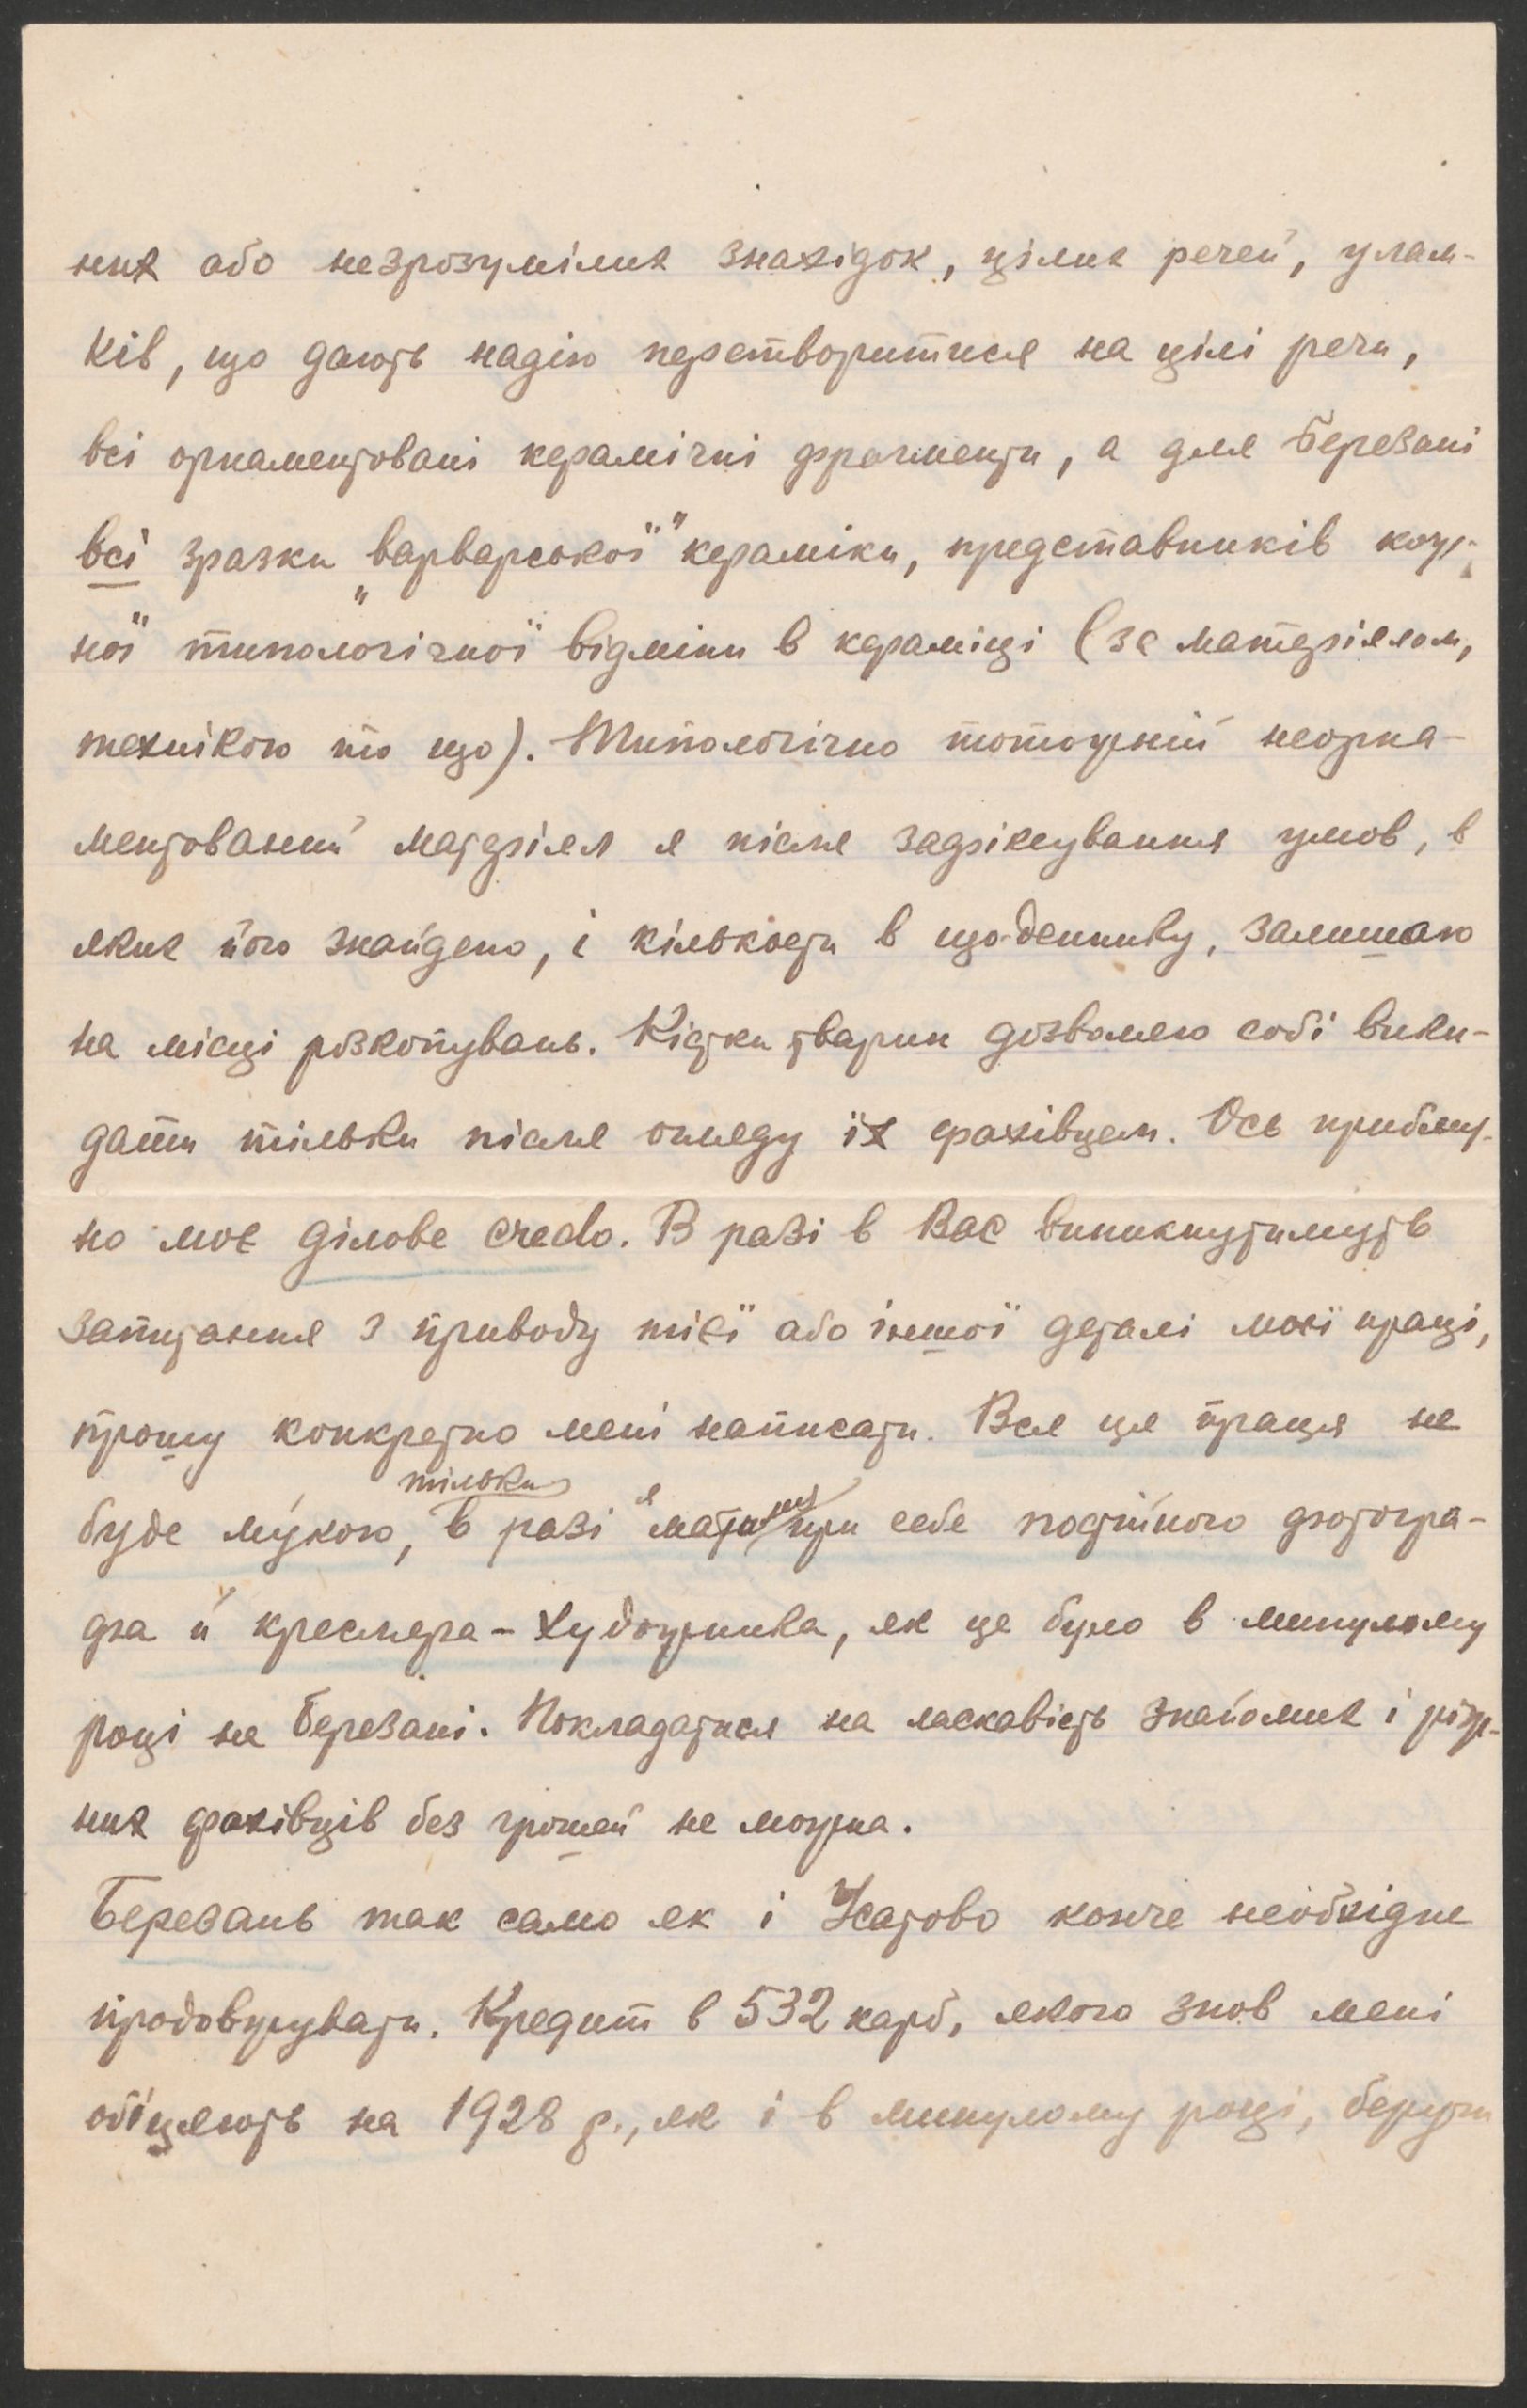 них або незрозумілих знахідок, цілих речей, улам-
ків, що дають надію перетворитися на цілі речи,
всі орнаментовані керамічні фрагменти, а для Березані
всі зразки „варварської" кераміки, представників кож-
ної типологічної відміни в кераміці (за матеріялом,
технікою то що). Типологічно тотожній неорна-
ментований матеріял я після зафіксування умов, в
яких його знайдено, і кількости в що-деннику, залишаю
на місці розкопувань. Кістки тварин дозволяю собі вики-
дати тільки після огляду їх фахівцем. Ось приблиз-
но моє ділове credo. В разі в Вас виникнутимуть
запитання з приводу тієї або іншої деталі моєї праці,
прошу конкретно мені написати. Вся ця праця не
буде мукою, тільки в разі я матиму при себе постійного фотогра-
фа й кресляра-художника, як це було в минулому
році на Березані. Покладатися на ласкавість знайомих і різ-
них фахівців без грошей не можна.
Березань так само як і Усатово конче необхідне
продовжувати. Кредит в 532 карб, якого знов мені
обіцяють на 1928 р., як і в минулому році, беручи